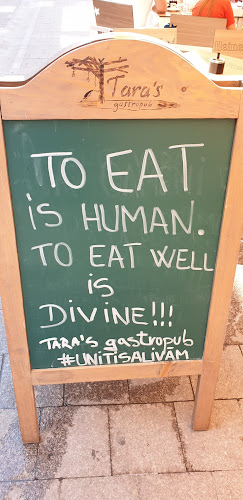 Tara's
gastropub
TO EAT
iS HUMAN.
TO EAT WELL
iS
DiViNE!!!
TARA'S gastropub
#UNiTiSALiVAM